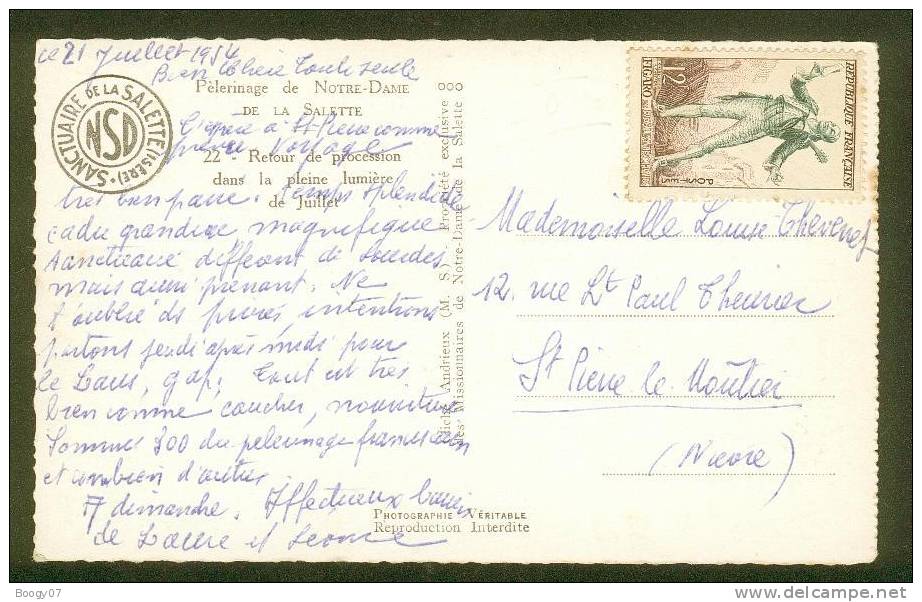 ce 21 Juillet 1954
Bien chère toute seule
Pèlerinage de NOTRE-DAME
DE LA SALETTE
à St Pierre comme
voyage
22 - Retour de procession
dans la pleine lumière
de Juillet
très bien passé. Temps splendide
cadre grandiose magnifique
Sanctuaire différent de Lourdes
mais aussi prenant. Ne
t'oublie ds prières, intentions
partons jeudi après midi pour
le Laus, Gap. Tout est très
bien comme coucher, nourriture
Sommes 300 du pèlerinage franciscain
et combien d'autres
A dimanche. Affectueux baisers
de Laure et Léonie
SANCTUAIRE DE LA SALETTE (ISÈRE)
NSD
Cliché Andrieux (M. S.) - Propriété exclusive
des Missionnaires de Notre-Dame de la Salette
PHOTOGRAPHIE VÉRITABLE
Reproduction Interdite
REPUBLIQUE FRANÇAISE
POSTES
12F
FIGARO
Mademoiselle Louise Thévenet
12, rue Lt Paul Theurier
St Pierre le Moutier
(Nièvre)
Boogy07